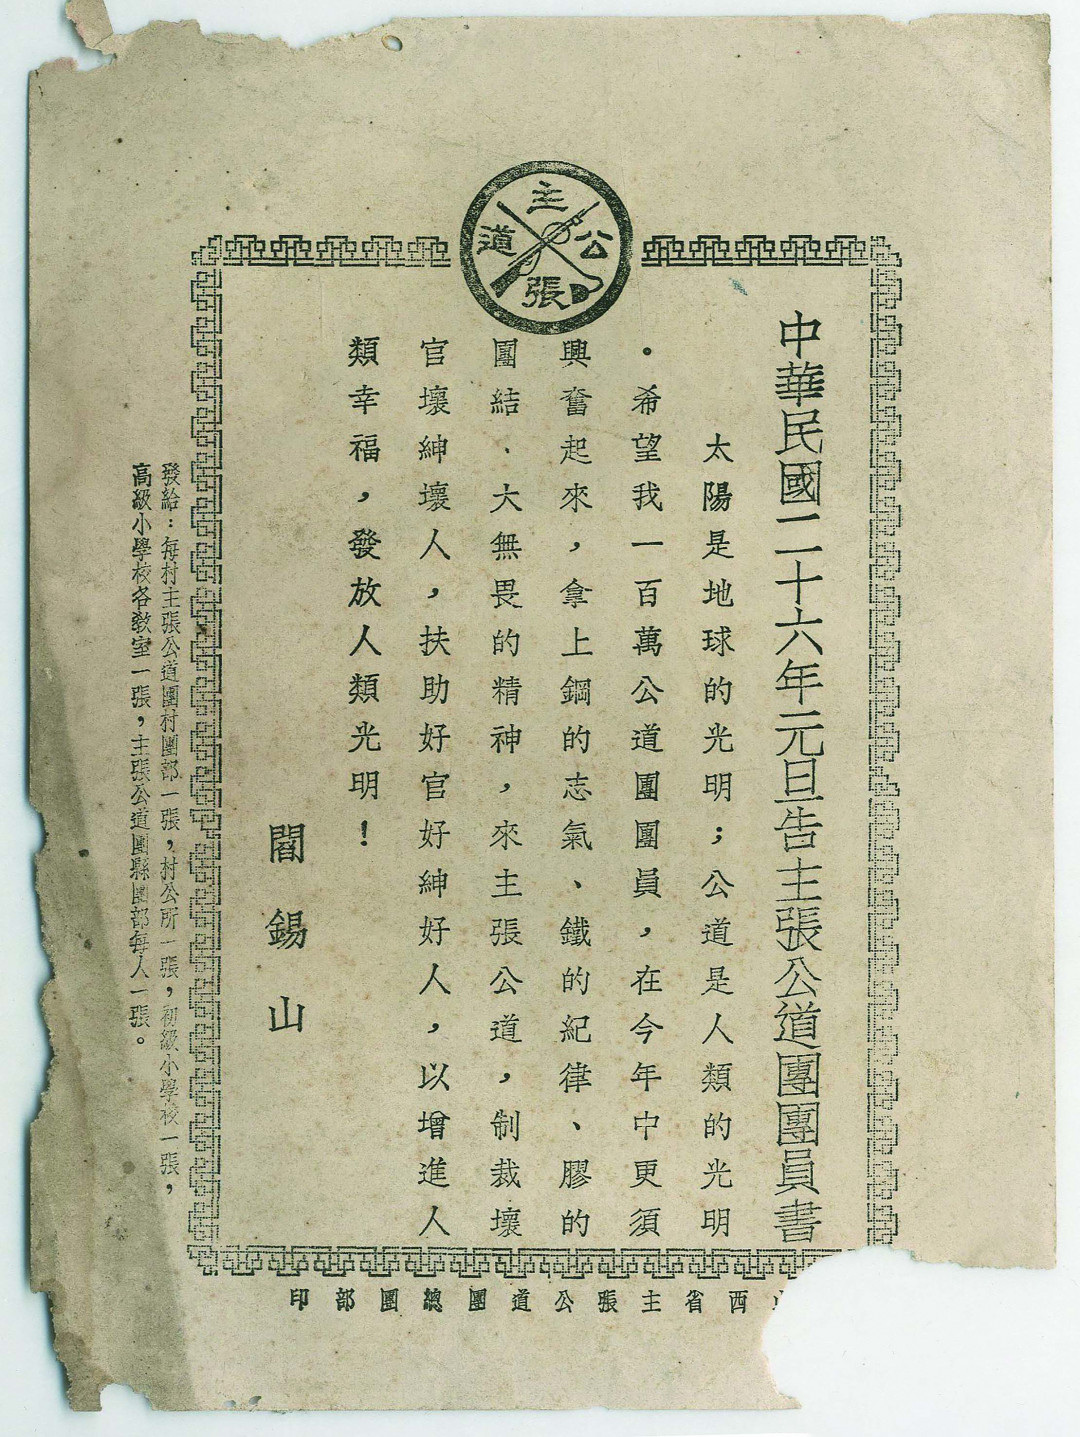 主張公道
中華民國二十六年元旦告主張公道團團員書
太陽是地球的光明；公道是人類的光明
。希望我一百萬公道團團員，在今年中更須
興奮起來，拿上鋼的志氣、鐵的紀律、膠的
團結、大無畏的精神，來主張公道，制裁壞
官壞紳壞人，扶助好官好紳好人，以增進人
類幸福，發放人類光明！
閻錫山
發給：每村主張公道團村團部一張，村公所一張，初級小學校一張，
高級小學校各教室一張，主張公道團縣團部每人一張。
西省主張公道團總團部印